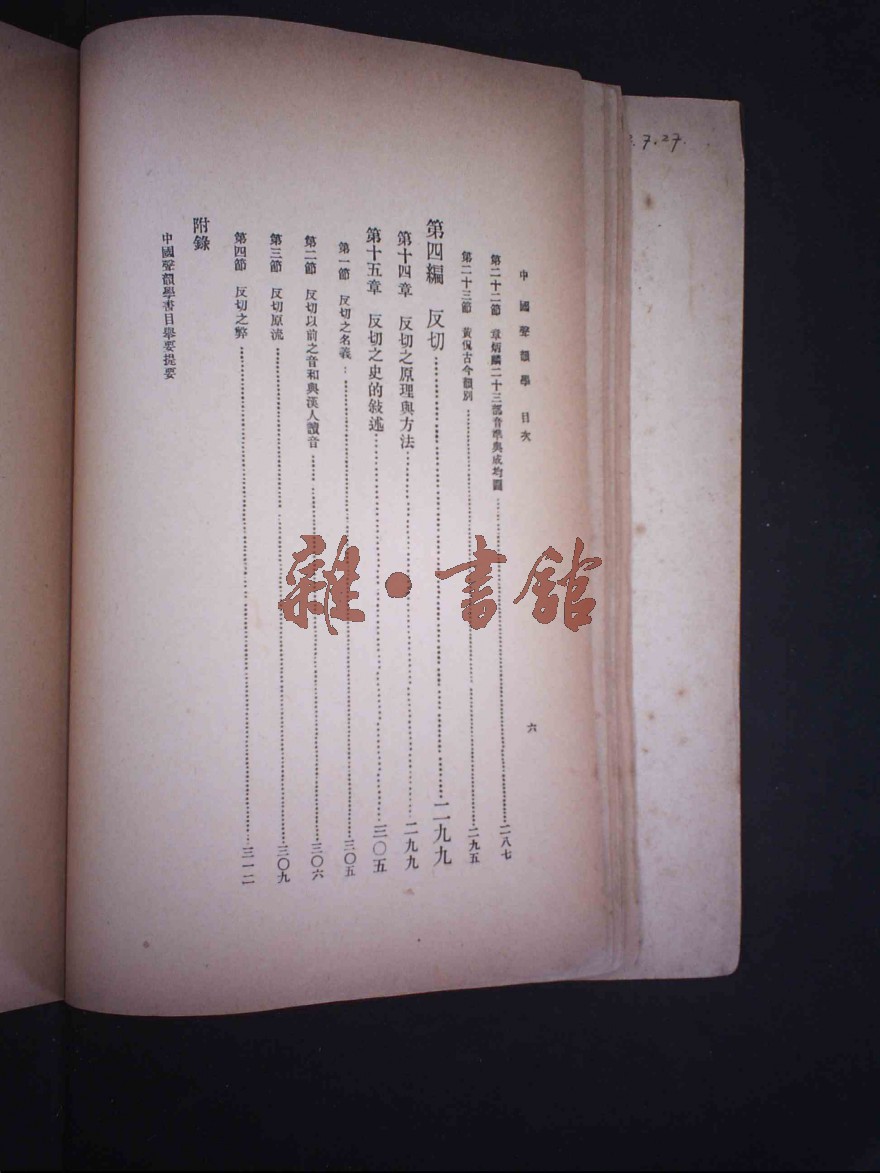 中國聲韻學 目次
六
第二十二節 章炳麟二十三部音準與成均圖……二八七
第二十三節 黃侃古今韻別……二九五
第四編 反切……二九九
第十四章 反切之原理與方法……二九九
第十五章 反切之史的敍述……三〇五
第一節 反切之名義……三〇五
第二節 反切以前之音和與漢人讀音……三〇六
第三節 反切原流……三〇九
第四節 反切之弊……三一二
附錄
中國聲韻學書目舉要提要
雜·書館
.7.27.